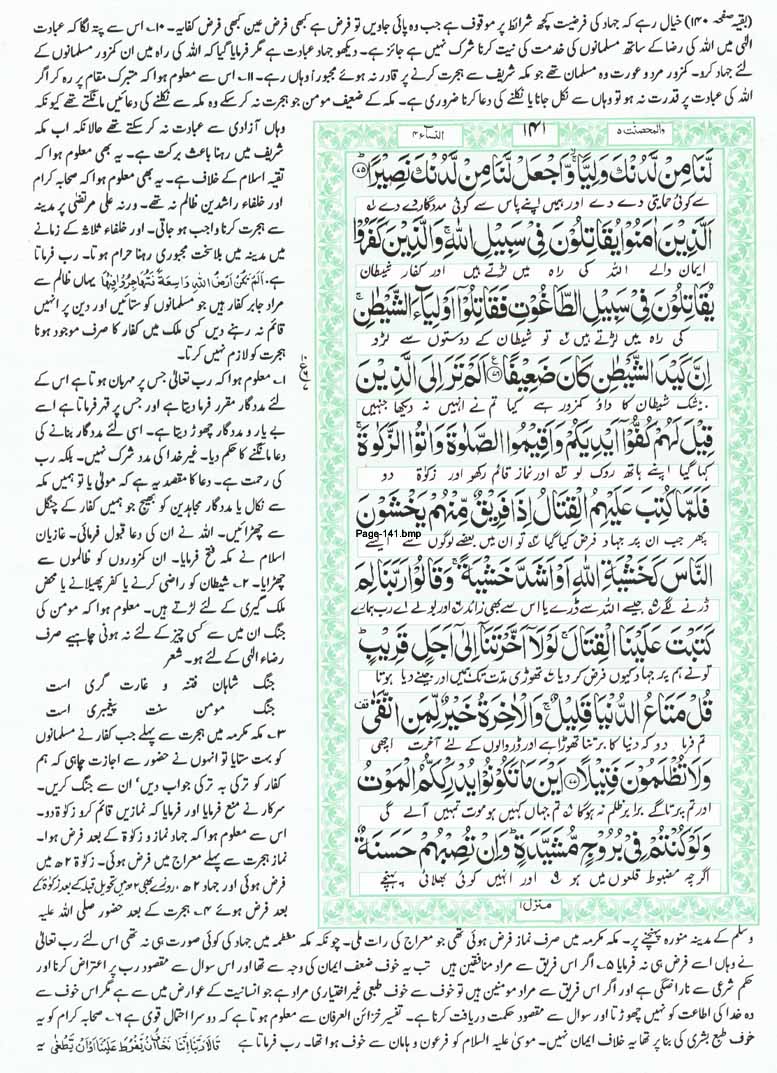 (بقیہ صفحہ ۱۴۰) خیال رہے کہ جہاد کی فرضیت کچھ شرائط پر موقوف ہے جب وہ پائی جاویں تو فرض ہے کبھی فرض عین کبھی فرض کفایہ۔ ۱۰۔ اس سے پتہ لگا کہ عبادت
الٰہی میں اللہ کی رضا کے ساتھ مسلمانوں کی خدمت کی نیت کرنا شرک نہیں ہے جائز ہے۔ دیکھو جہاد عبادت ہے مگر فرمایا گیا کہ اللہ کی راہ میں ان کمزور مسلمانوں کے
لئے جہاد کرو۔ کمزور مرد و عورت وہ مسلمان تھے جو مکہ شریف سے ہجرت کرنے پر قادر نہ ہوئے مجبوراً وہاں رہے۔ ۱۱۔ اس سے معلوم ہوا کہ متبرک مقام پر رہ کر اگر
اللہ کی عبادت پر قدرت نہ ہو تو وہاں سے نکل جانا یا نکلنے کی دعا کرنا ضروری ہے۔ مکہ کے ضعیف مومن جو ہجرت نہ کر سکے وہ مکہ سے نکلنے کی دعائیں مانگتے تھے کیونکہ
وہاں آزادی سے عبادت نہ کر سکتے تھے حالانکہ اب مکہ
شریف میں رہنا باعث برکت ہے۔ یہ بھی معلوم ہوا کہ
تقیہ اسلام کے خلاف ہے۔ یہ بھی معلوم ہوا کہ صحابہ کرام
اور خلفاء راشدین ظالم نہ تھے۔ ورنہ علی مرتضیٰ پر مدینہ
سے ہجرت کرنا واجب ہو جاتی۔ اور خلفاء ثلاثہ کے زمانے
میں مدینہ میں بلاسخت مجبوری رہنا حرام ہوتا۔ رب فرماتا
ہے۔ اَلَمْ تَكُنْ اَرْضُ اللہِ وَاسِعَةً فَتُهَاجِرُوْا فِيْهَا یہاں ظالم سے
مراد جابر کفار ہیں جو مسلمانوں کو ستائیں اور دین پر انہیں
قائم نہ رہنے دیں کسی ملک میں کفار کا صرف موجود ہونا
ہجرت کو لازم نہیں کرتا۔
۱۔ معلوم ہوا کہ رب تعالیٰ جس پر مہربان ہوتا ہے اس کے
لئے مددگار مقرر فرما دیتا ہے اور جس پر قہر فرماتا ہے اسے
بے یار و مددگار چھوڑ دیتا ہے۔ اسی لئے مددگار بنانے کی
دعا مانگنے کا حکم دیا۔ غیر خدا کی مدد شرک نہیں۔ بلکہ رب
کی رحمت ہے۔ دعا کا مقصد یہ ہے کہ مولیٰ یا تو ہمیں مکہ
سے نکال یا مددگار مجاہدین کو بھیج جو ہمیں کفار کے چنگل
سے چھڑائیں۔ اللہ نے ان کی دعا قبول فرمائی۔ غازیان
اسلام نے مکہ فتح فرمایا۔ ان کمزوروں کو ظالموں سے
چھڑایا۔ ۲۔ شیطان کو راضی کرنے یا کفر پھیلانے یا محض
ملک گیری کے لئے لڑتے ہیں۔ معلوم ہوا کہ مومن کی
جنگ ان میں سے کسی چیز کے لئے نہ ہونی چاہیے صرف
رضاء الٰہی کے لئے ہو۔ شعر
جنگ شاہاں فتنہ و غارت گری است
جنگ مومن سنت پیغمبری است
۳۔ مکہ مکرمہ میں ہجرت سے پہلے جب کفار نے مسلمانوں
کو بہت ستایا تو انہوں نے حضور سے اجازت چاہی کہ ہم
کفار کو ترکی بہ ترکی جواب دیں' ان سے جنگ کریں۔
سرکار نے منع فرمایا اور فرمایا کہ نمازیں قائم کرو زکوٰۃ دو۔
اس سے معلوم ہوا کہ جہاد نماز و زکوٰۃ کے بعد فرض ہوا۔
نماز ہجرت سے پہلے معراج میں فرض ہوئی۔ زکوٰۃ ۲ھ میں
فرض ہوئی اور جہاد ۲ھ، روزے بھی ۲ھ میں تحویل قبلہ کے بعد زکوٰۃ کے
بعد فرض ہوئے ۴۔ ہجرت کے بعد حضور صلی اللہ علیہ
والمحصنٰت ۵
۱۴۱
النساء ۴
لَّنَا مِنْ لَّدُنْكَ وَلِيًّا ۙ وَّاجْعَلْ لَّنَا مِنْ لَّدُنْكَ نَصِيْرًا ﴿۷۵﴾
سے کوئی حمایتی دے دے اور ہمیں اپنے پاس سے کوئی مددگار دے دے
اَلَّذِيْنَ اٰمَنُوْا يُقَاتِلُوْنَ فِيْ سَبِيْلِ اللّٰهِ ۚ وَالَّذِيْنَ كَفَرُوْا
ایمان والے اللہ کی راہ میں لڑتے ہیں اور کفار شیطان
يُقَاتِلُوْنَ فِيْ سَبِيْلِ الطَّاغُوْتِ فَقَاتِلُوْٓا اَوْلِيَآءَ الشَّيْطٰنِ ۚ
کی راہ میں لڑتے ہیں تو شیطان کے دوستوں سے لڑو
اِنَّ كَيْدَ الشَّيْطٰنِ كَانَ ضَعِيْفًا ﴿۷۶﴾ اَلَمْ تَرَ اِلَى الَّذِيْنَ
بیشک شیطان کا داؤ کمزور ہے کیا تم نے انہیں نہ دیکھا جنہیں
قِيْلَ لَهُمْ كُفُّوْٓا اَيْدِيَكُمْ وَاَقِيْمُوا الصَّلٰوةَ وَاٰتُوا الزَّكٰوةَ ۚ
کہا گیا اپنے ہاتھ روک لو اور نماز قائم رکھو اور زکوٰۃ دو
فَلَمَّا كُتِبَ عَلَيْهِمُ الْقِتَالُ اِذَا فَرِيْقٌ مِّنْهُمْ يَخْشَوْنَ
پھر جب ان پر جہاد فرض کیا گیا تو ان میں بعضے لوگوں سے ایسے
Page-141.bmp
النَّاسَ كَخَشْيَةِ اللّٰهِ اَوْ اَشَدَّ خَشْيَةً ۚ وَقَالُوْا رَبَّنَا لِمَ
ڈرنے لگے جیسے اللہ سے ڈرے یا اس سے بھی زائد اور بولے اے رب ہمارے
كَتَبْتَ عَلَيْنَا الْقِتَالَ ۚ لَوْلَآ اَخَّرْتَنَآ اِلٰٓى اَجَلٍ قَرِيْبٍ ۭ
تو نے ہم پر جہاد کیوں فرض کر دیا تھوڑی مدت تک ہمیں اور جینے دیا ہوتا
قُلْ مَتَاعُ الدُّنْيَا قَلِيْلٌ ۚ وَالْاٰخِرَةُ خَيْرٌ لِّمَنِ اتَّقٰى ۣ
تم فرما دو کہ دنیا کا برتنا تھوڑا ہے اور ڈر والوں کے لئے آخرت اچھی
وَلَا تُظْلَمُوْنَ فَتِيْلًا ﴿۷۷﴾ اَيْنَ مَا تَكُوْنُوْا يُدْرِكْكُّمُ الْمَوْتُ
اور تم پر تاگے برابر ظلم نہ ہوگا تم جہاں کہیں ہو موت تمہیں آ لے گی
وَلَوْ كُنْتُمْ فِيْ بُرُوْجٍ مُّشَيَّدَةٍ ۭ وَاِنْ تُصِبْهُمْ حَسَنَةٌ
اگرچہ مضبوط قلعوں میں ہو اور انہیں کوئی بھلائی پہنچے
منزل ۱
وسلم کے مدینہ منورہ پہنچنے پر۔ مکہ مکرمہ میں صرف نماز فرض ہوئی تھی جو معراج کی رات ملی۔ چونکہ مکہ معظمہ میں جہاد کی کوئی صورت ہی نہ تھی اس لئے رب تعالیٰ
نے وہاں اسے فرض ہی نہ فرمایا ۵۔ اگر اس فریق سے مراد منافقین ہیں تب یہ خوف ضعف ایمان کی وجہ سے تھا اور اس سوال سے مقصود رب پر اعتراض کرنا اور
حکم شرعی سے ناراضگی ہے اور اگر اس فریق سے مراد مومنین ہیں تو خوف سے خوف طبعی غیر اختیاری مراد ہے جو انسانیت کے عوارض میں سے ہے مگر اس خوف سے
وہ خدا کی اطاعت کو نہیں چھوڑتا اور سوال سے مقصود حکمت دریافت کرنا ہے۔ تفسیر خزائن العرفان سے معلوم ہوتا ہے کہ دوسرا احتمال قوی ہے ۶۔ صحابہ کرام کو یہ
خوف طبع بشری کی بنا پر تھا یہ خلاف ایمان نہیں۔ موسیٰ علیہ السلام کو فرعون و ہامان سے خوف ہوا تھا۔ رب فرماتا ہے قَالَا رَبَّنَا اِنَّنَا نَخَافُ اَنْ يَّفْرُطَ عَلَيْنَا اَوْ اَنْ يَّطْغٰى یہ